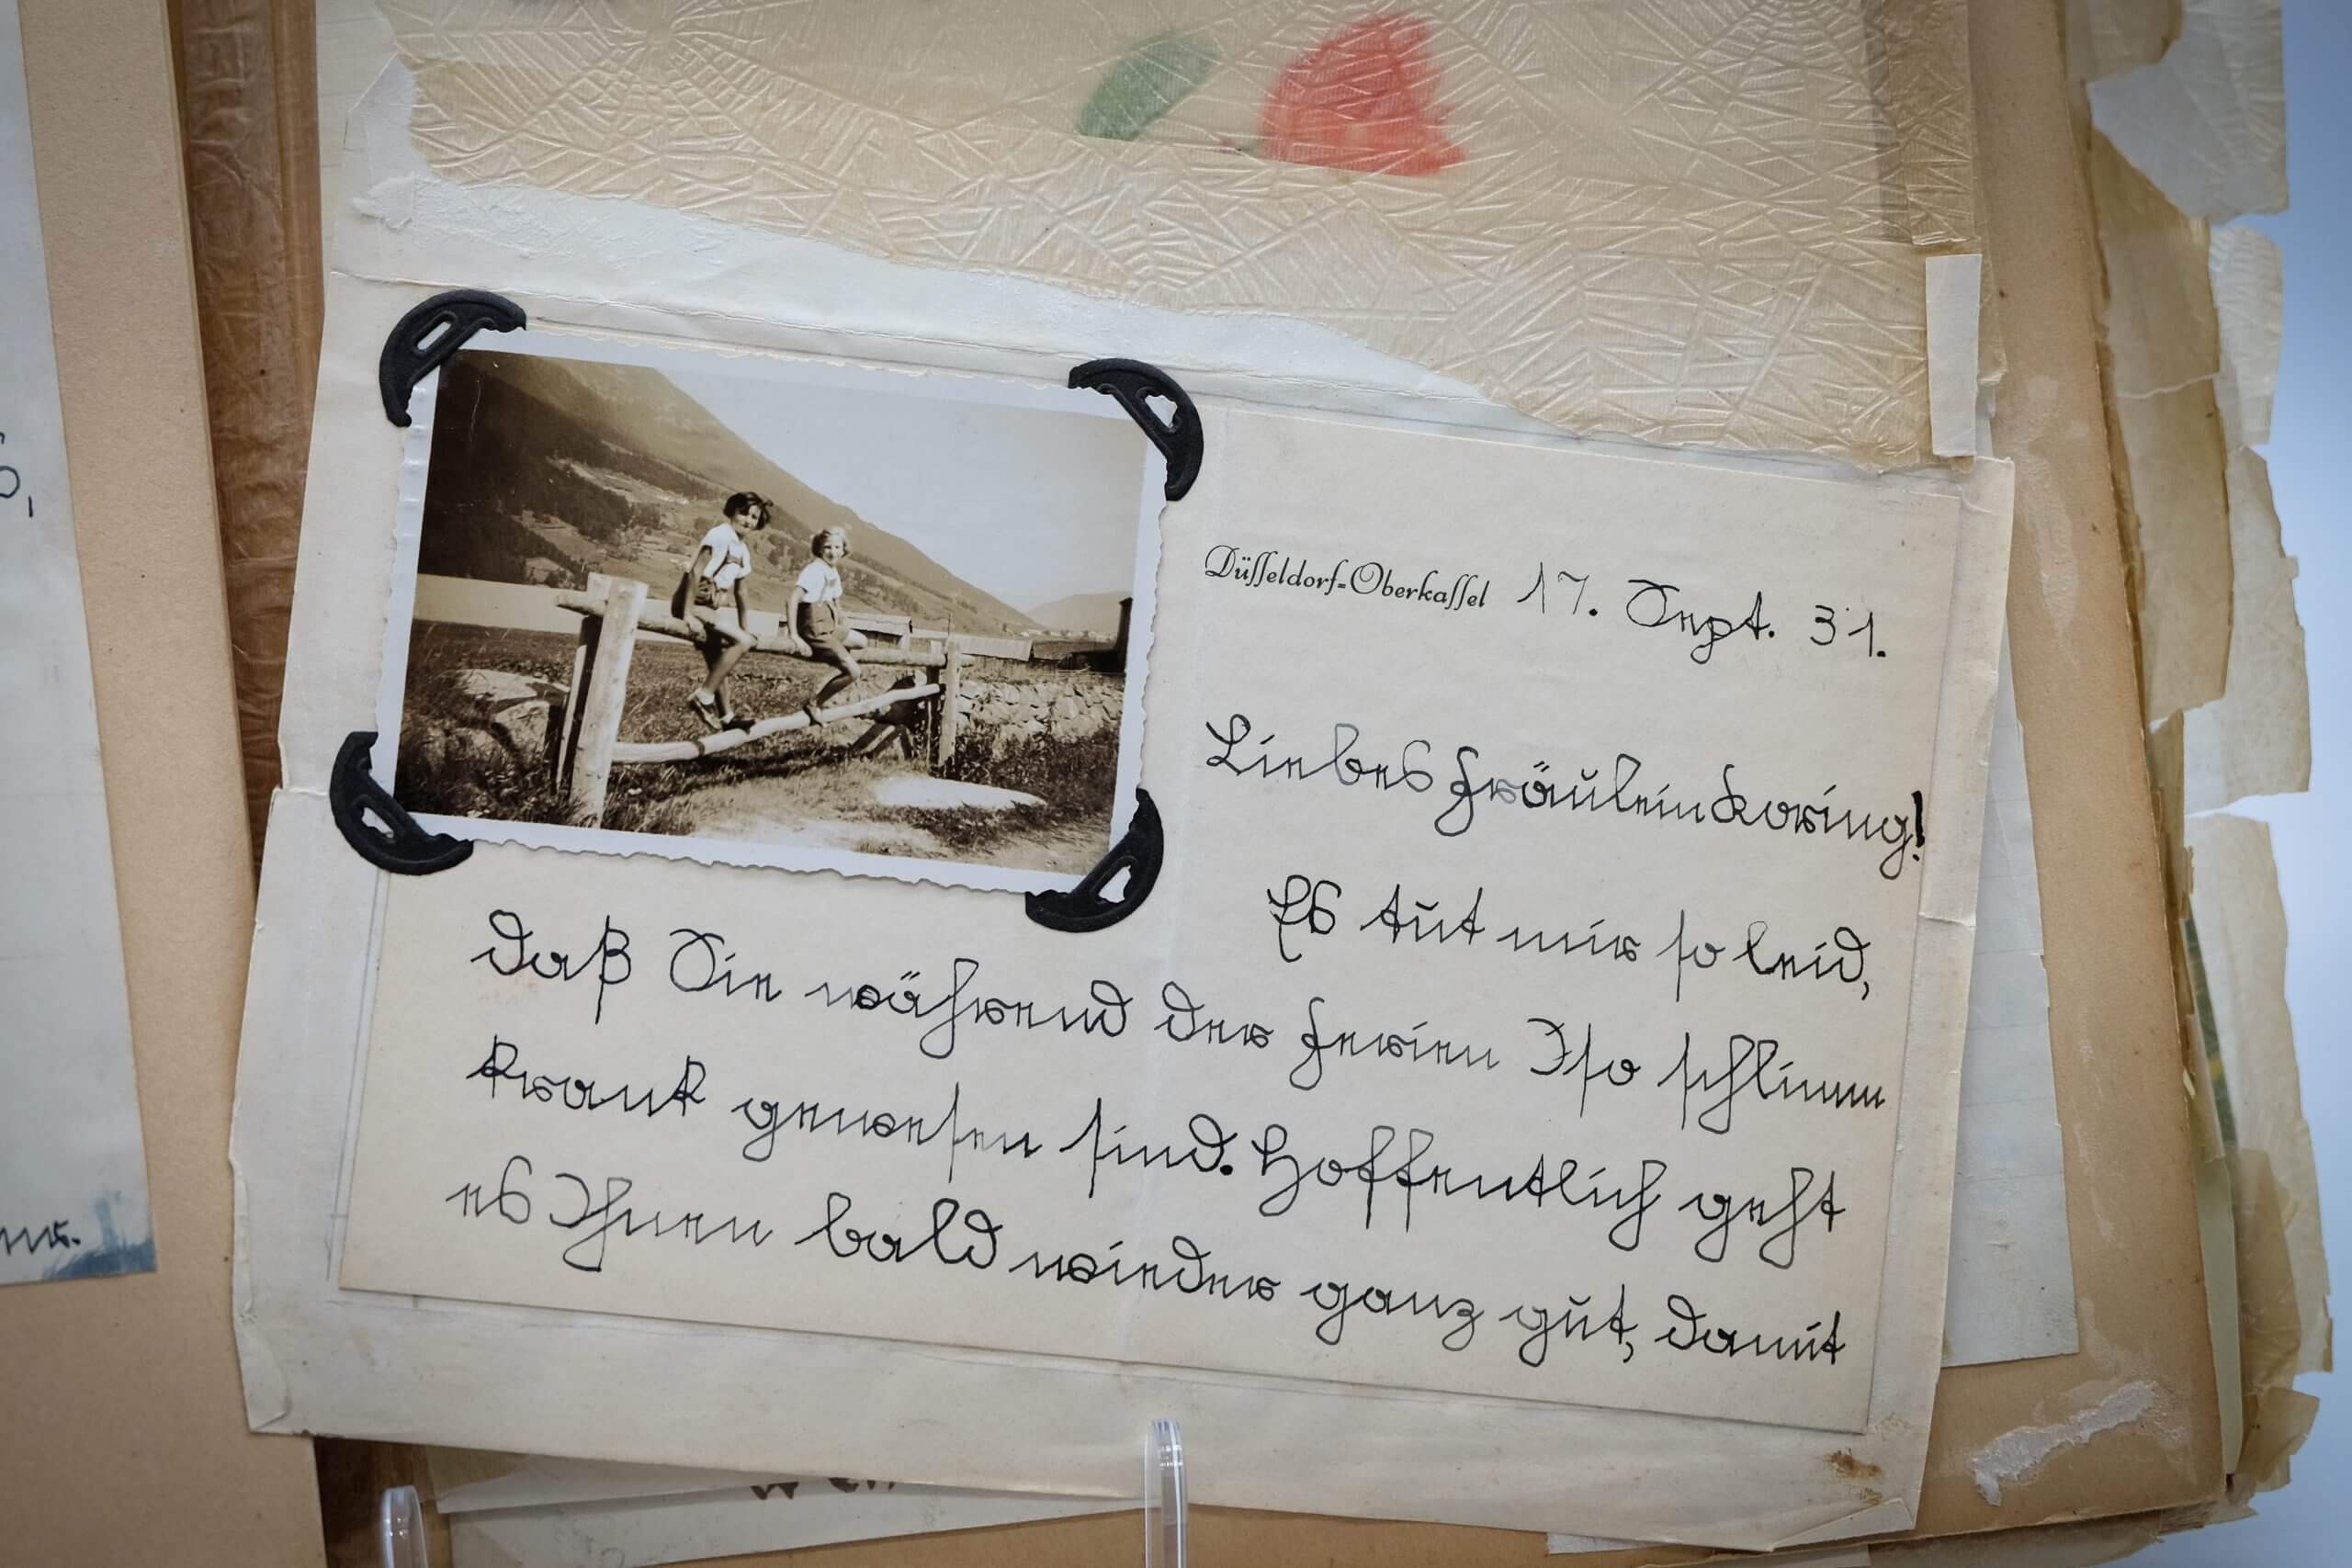 Düsseldorf-Oberkassel 17. Sept. 31.
Liebes Fräulein Koring!
Es tut mir so leid,
daß Sie während der Ferien so schlimm
krank gewesen sind. Hoffentlich geht
es Ihnen bald wieder ganz gut, damit